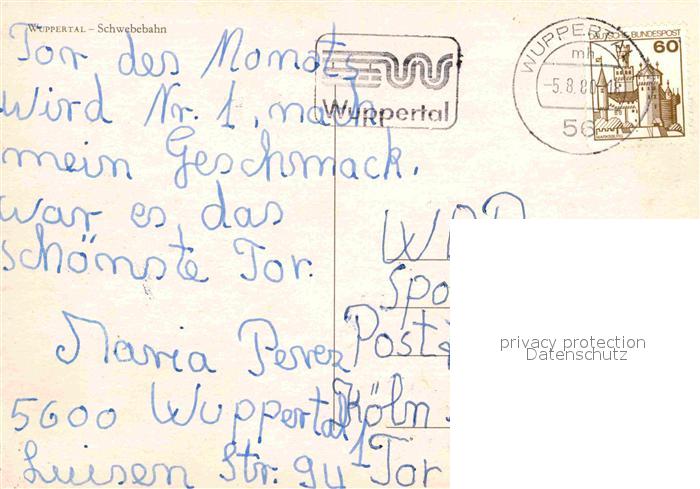 WUPPERTAL – Schwebebahn
Tor des Monats
wird Nr. 1, nach
mein Geschmack.
war es, das
schönste Tor.
Maria Perez
5600 Wuppertal 1
Luisen Str. 94
Wuppertal
WUPPERTAL
mh
-5.8.80-18
56
DEUTSCHE BUNDESPOST
60
MARKSBURG
WDR
Spo
Post
Köln
Tor
privacy protection
Datenschutz